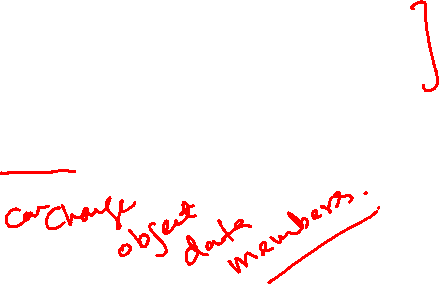 can change object data members.